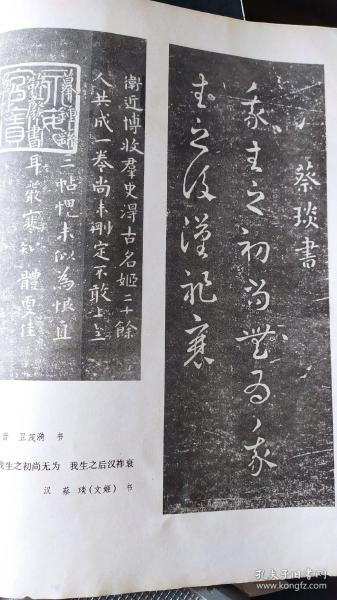 蔡琰書
我生之初尚無為我
生之後漢祚衰
衛近博收羣史得古名姬二十餘
人共成一卷尚未刪定不敢上呈
三帖
未似為恨且
耳
體更佳
晋 卫茂漪 书
我生之初尚无为 我生之后汉祚衰
汉 蔡 琰(文姬) 书
孔夫子旧书网